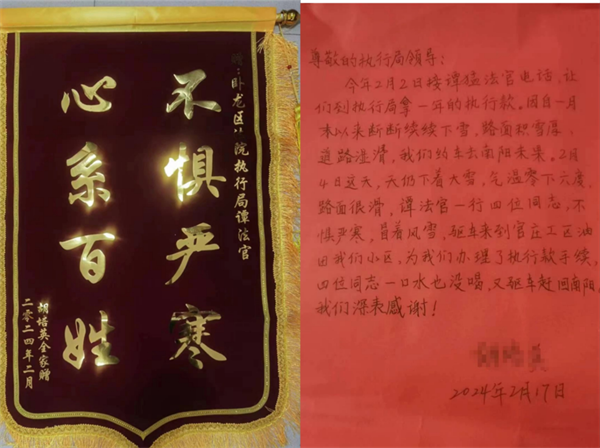 赠：卧龙区法院执行局谭法官
不惧严寒
心系百姓
胡培英全家赠
二零二四年二月
尊敬的执行局领导：
今年2月2日接谭猛法官电话，让
们到执行局拿一年的执行款，因自一月
末以来断断续续下雪，路面积雪厚，
道路湿滑，我们约车去南阳未果。2月
4日这天，天仍下着大雪，气温零下六度，
路面很滑，谭法官一行四位同志，不
惧严寒，冒着风雪，驱车来到官庄工区油
田我们小区，为我们办理了执行款手续，
四位同志一口水也没喝，又驱车赶回南阳，
我们深表感谢！
2024年2月17日